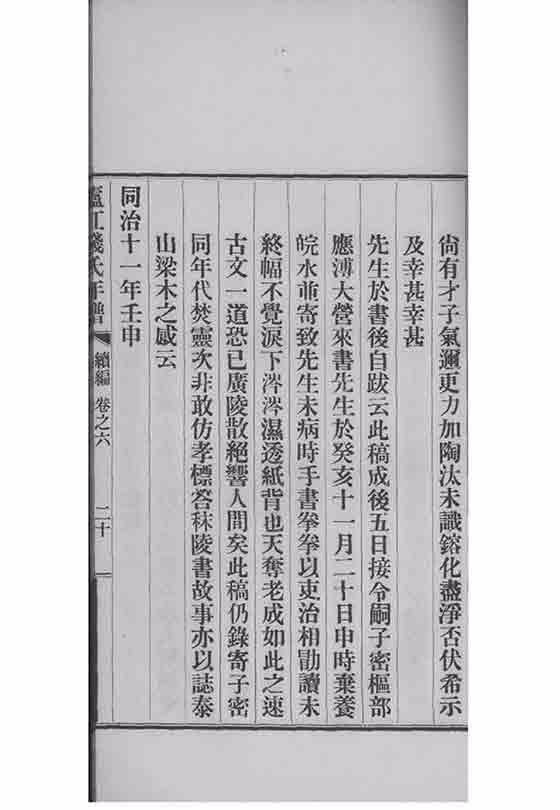 尙有才子氣邇更力加陶汰未識鎔化盡淨否伏希示
及幸甚幸甚
先生於書後自跋云此稿成後五日接令嗣子密樞部
應溥大營來書先生於癸亥十一月二十日申時棄養
皖水並寄致先生未病時手書拳拳以吏治相勖讀未
終幅不覺淚下涔涔濕透紙背也天奪老成如此之速
古文一道恐已廣陵散絕響人間矣此稿仍錄寄子密
同年代焚靈次非敢仿孝標荅秣陵書故事亦以誌泰
山梁木之感云
同治十一年壬申
廬江錢氏年譜 續編 卷之六 二十